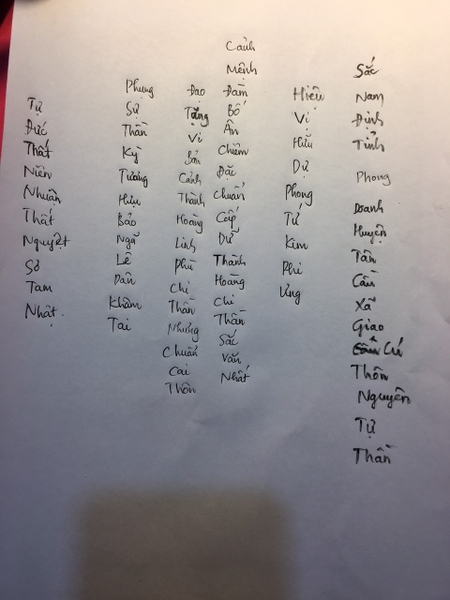 Sắc Nam Định Tỉnh Phong Doanh Huyện Tân Cần Xã Giao Cú Thôn Nguyên Tự Thần
Hiêu Vị Hữu Dự Phong Tứ Kim Phi Ưng
Cảnh Mệnh Đàm Bố Ân Chiêm Đặc Chuẩn Cấp Dữ Thành Hoàng Chi Thần Sắc Văn Nhất
Đạo Tặng Vi Bản Cảnh Thành Hoàng Linh Phù Chi Thần Nhưng Chuẩn Cai Thôn
Phụng Sự Thần Kỳ Tương Hựu Bảo Ngã Lê Dân Khâm Tai
Tự Đức Thất Niên Nhuận Thất Nguyệt Sơ Tam Nhật.